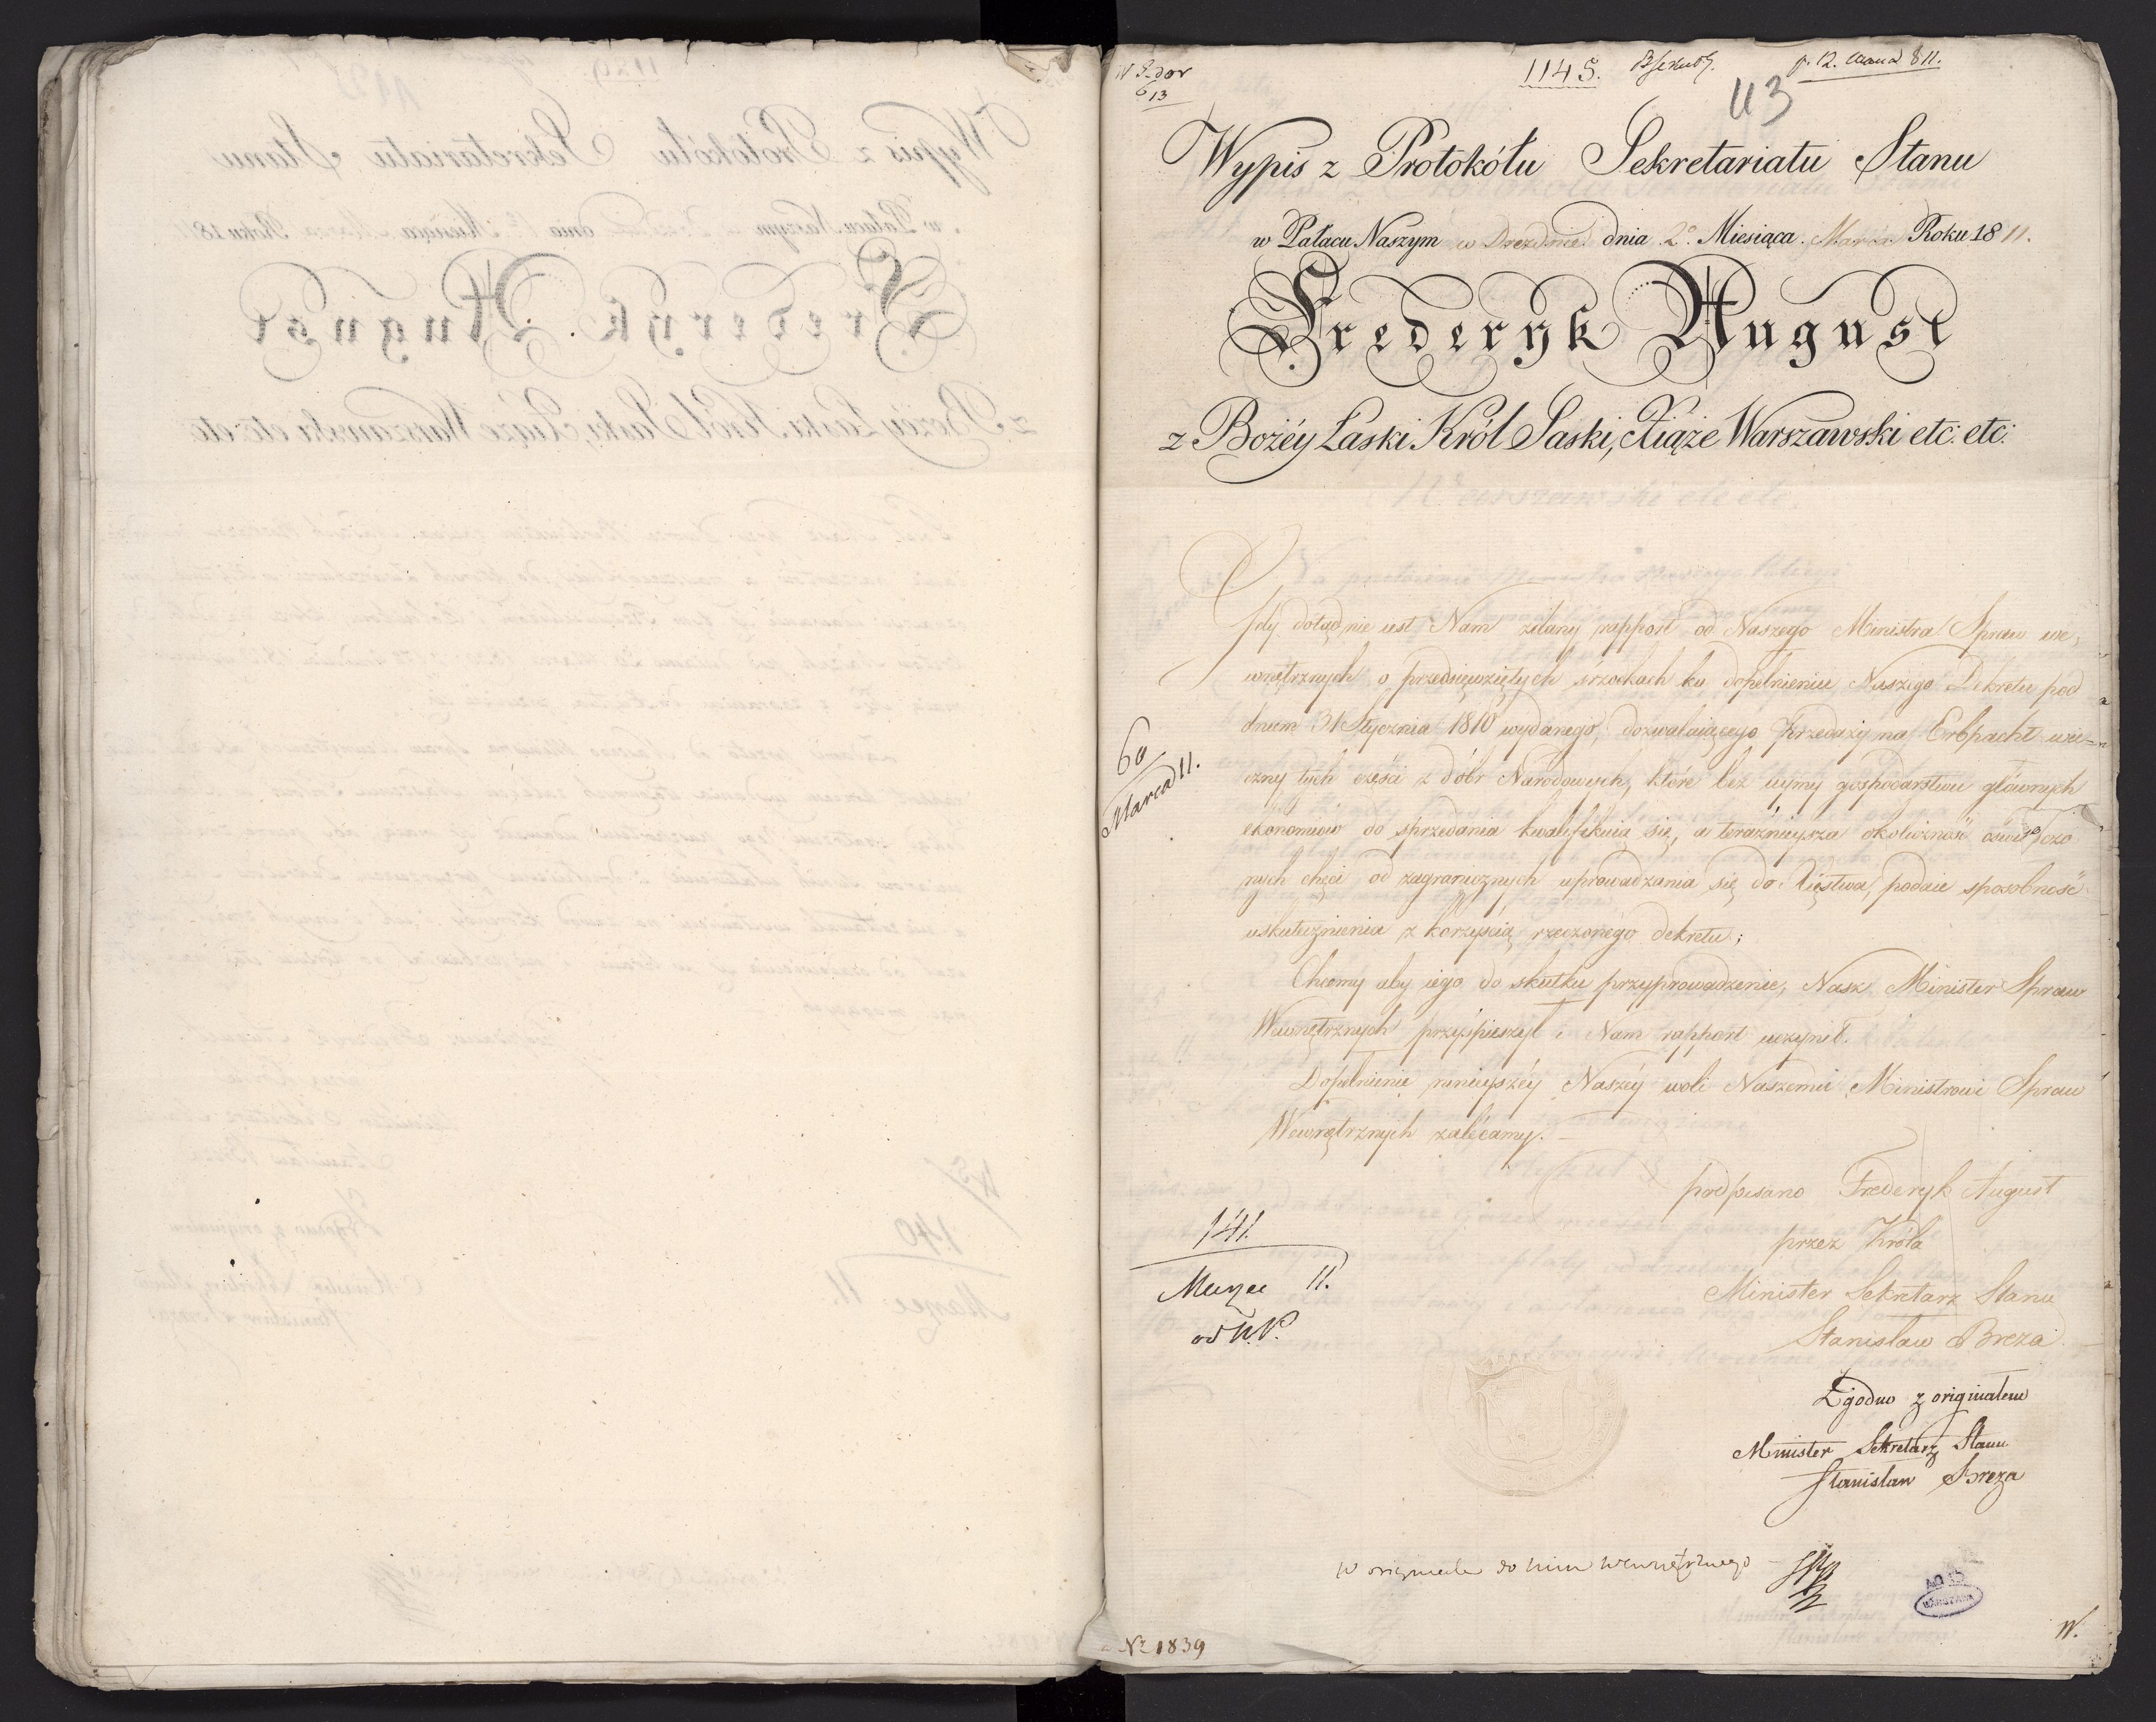 1145.
p. 12. Marca 811.
113
Wypis z Protokółu Sekretariatu Stanu
w Pałacu Naszym w Dreznie dnia 2º Miesiąca Marca Roku 1811.
Frederyk August
z Bożéy Łaski Król Saski, Xiąże Warszawski etc: etc:
Gdy dotąd nie iest Nam zdany rapport od Naszego Ministra Spraw we,
wnętrznych o przedsięwziętych srzodkach ku dopełnieniu Naszego Dekretu pod
dniem 31 Stycznia 1810 wydanego, dozwalaiącego przedaży na Erbpacht wie=
czny tych części z dóbr Narodowych, które bez uymy gospodarstwu głównych
ekonomiów do sprzedania kwalifikuią się, a teraźnieysza okoliczność oświadczo
nych chęci od zagranicznych wprowadzania się do Xięstwa, podaie sposobność
uskutecznienia z korzyścią rzeczonego dekretu;
Chcemy aby iego do skutku przyprowadzenie, Nasz Minister Spraw
Wewnętrznych przyśpieszył i Nam rapport uczynił.
Dopełnienie ninieyszéy Naszéy woli Naszemu Ministrowi Spraw
Wewnętrznych zalécamy.
60
Marca 11.
podpisano Frederyk August
przez Króla
Minister Sekretarz Stanu
Stanisław Breza
141.
Marzec 11.
od N.P.
Zgodno z originałem
Minister Sekretarz Stanu
Stanisław Breza
w originale do Min Wewnętrznego
AGAD
WARSZAWA
Nº 1839
W.